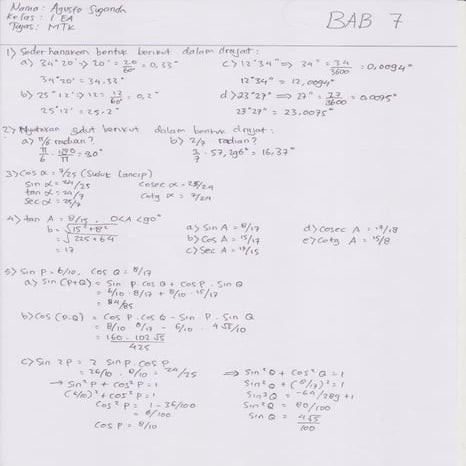 Nama : Agusto Suganda
Kelas : 1 EA
Tugas : MTK
BAB 7
1) Sederhanakan bentuk berikut dalam drajat :
a) 34°20' ⇒ 20' = 20/60 = 0,33° c) 12°34" ⇒ 34" = 34/3600 = 0,0094°
34°20' = 34.33° 12°34" = 12,0094°
b) 25°12' ⇒ 12 = 12/60 = 0,2° d) 23°27" ⇒ 27" = 27/3600 = 0.0075°
25°12' = 25.2° 27°27" = 23.0075°
2) Nyatakan sudut berikut dalam bentuk drajat :
a) π/6 radian? b) 2/7 radian?
π/6 . 180/π = 30° 2/7 . 57,296° = 16.37°
3) Cos α = 7/25 (Sudut Lancip)
Sin α = 24/25 cosec α = 25/24
tan α = 24/7 cotg α = 7/24
Sec α = 25/7
4) tan A = 8/15 , 0<A<90°
b = √15² + 8² a) Sin A = 8/17 d) Cosec A = 17/8
= √225 + 64 b) Cos A = 15/17 e) Cotg A = 15/8
= 17 c) Sec A = 17/15
5) Sin P = 6/10, Cos Q = 8/17
a) Sin (P+Q) = Sin P. Cos Q + Cos P. Sin Q
= 6/10 . 8/17 + 8/10 . 15/17
= 84/85
b) Cos (P.Q) = Cos P. Cos Q - Sin P. Sin Q
= 8/10 . 8/17 - 6/10 . 4√5/10
= 160 - 102√5 / 425
c) Sin 2P = 2 Sin P. Cos P
= 26/10 . 8/10 = 24/25
→ Sin² P + Cos² P = 1
(6/10)² + Cos² P = 1
Cos² P = 1 - 36/100
= 8/100
Cos P = 8/10
⇒ Sin² Q + Cos² Q = 1
Sin² Q + (8/17)² = 1
Sin² Q = -64/289 + 1
Sin² Q = 80/100
Sin Q = 4√5/100